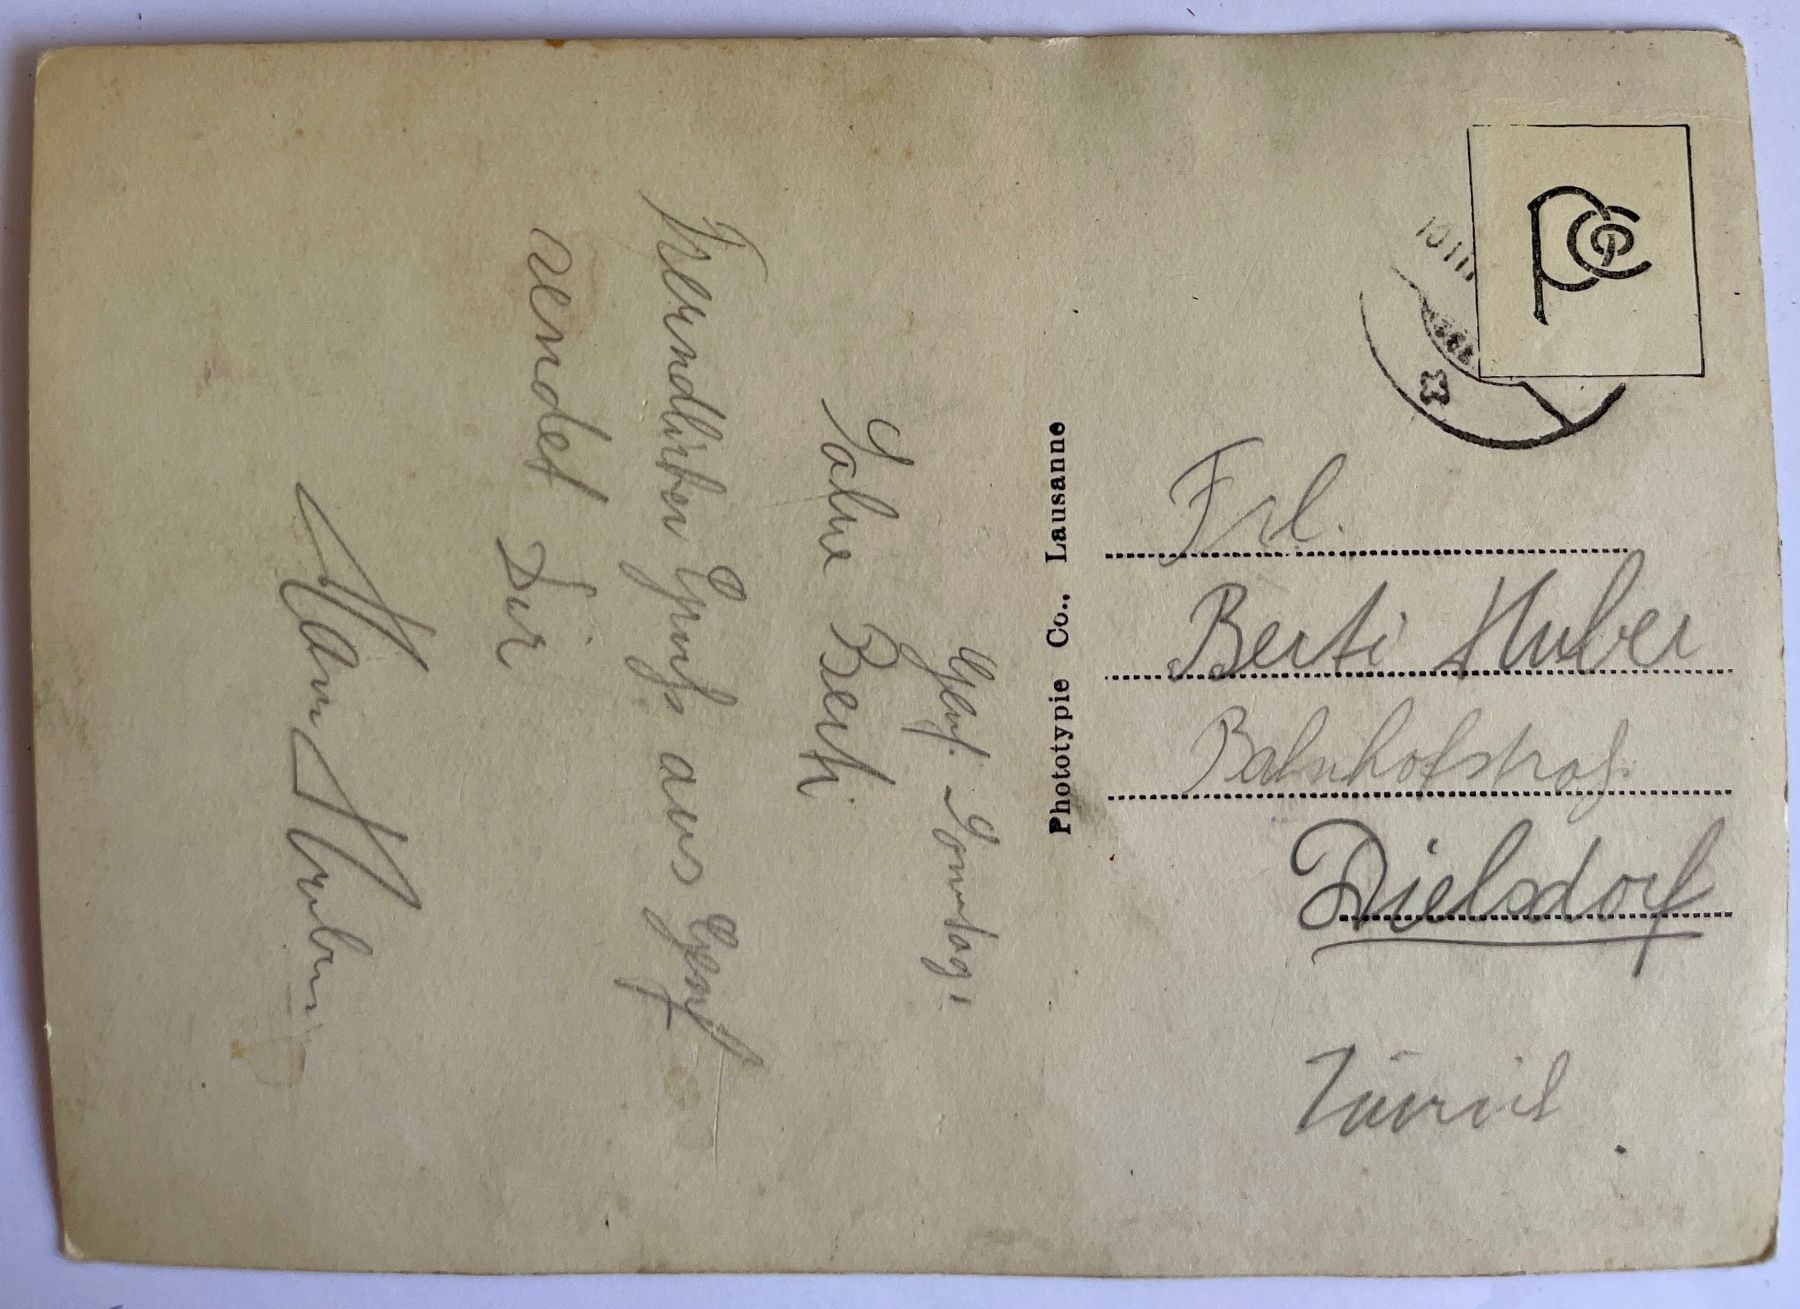 Genf. Sonntag.
Salue Berti
Freundlichen Gruss aus Genf
sendet Dir
Phototypie Co., Lausanne
Frl.
Berti Huber
Bahnhofstrass
Dielsdorf
Zürich